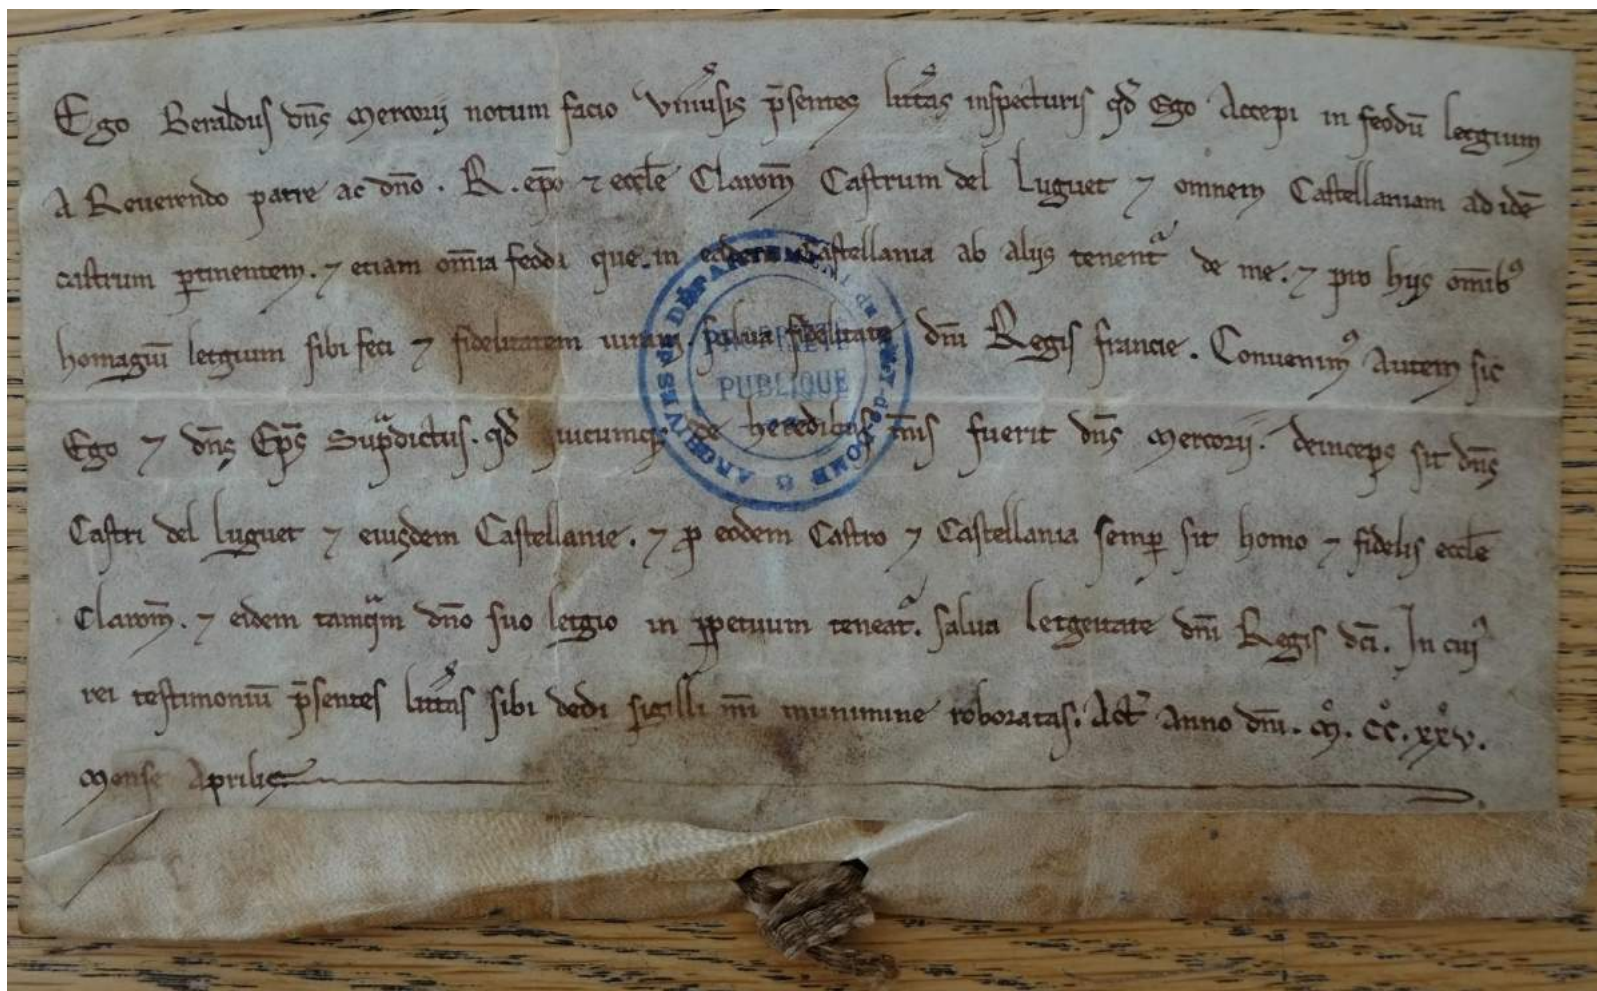 Ego Beraldus dñs Mercorij notum facio vniu͛sis p̄sentes litt͛as inspecturis qd̓ Ego Accepi in feodū letgium
A Reuerendo patre ac dño . R . ep̄o ⁊ eccl̄e Clarom̄ Castrum del Luguet ⁊ omnem Castellaniam ad idē
castrum ꝑtinentem . ⁊ etiam om̄ia feoda que in eadem Castellania ab alijs tenent᷑ de me . ⁊ pro hijs om̄ibꝰ
homagiū letgium sibi feci ⁊ fidelitatem iuraui . salua fidelitate dñi Regis francie . Conuenimꝰ Autem sic
Ego ⁊ dñs Ep̄s Supᵃdictus . qd̓ quicumqꝫ de heredibus m̄is fuerit dñs Mercorij . deinceps sit dñs
Castri del Luguet ⁊ eiusdem Castellanie . ⁊ ꝓ eodem Castro ⁊ Castellania semꝑ sit homo ⁊ fidelis eccl̄e
Clarom̄ . ⁊ eidem tamqᵃm dño suo letgio in ꝑpetuum teneat᷑ . salua letgeitate dñi Regis dc̄i . In cuiꝰ
rei testimoniū p̄sentes litt͛as sibi dedi sigilli m̄i munimine roboratas . Act̄ Anno dñi . M̊ . CC̊ . xx̊v .
Mense Aprilis
ARCHIVES du DÉPARTEMENT du PUY-de-DOME
PROPRIÉTÉ
PUBLIQUE